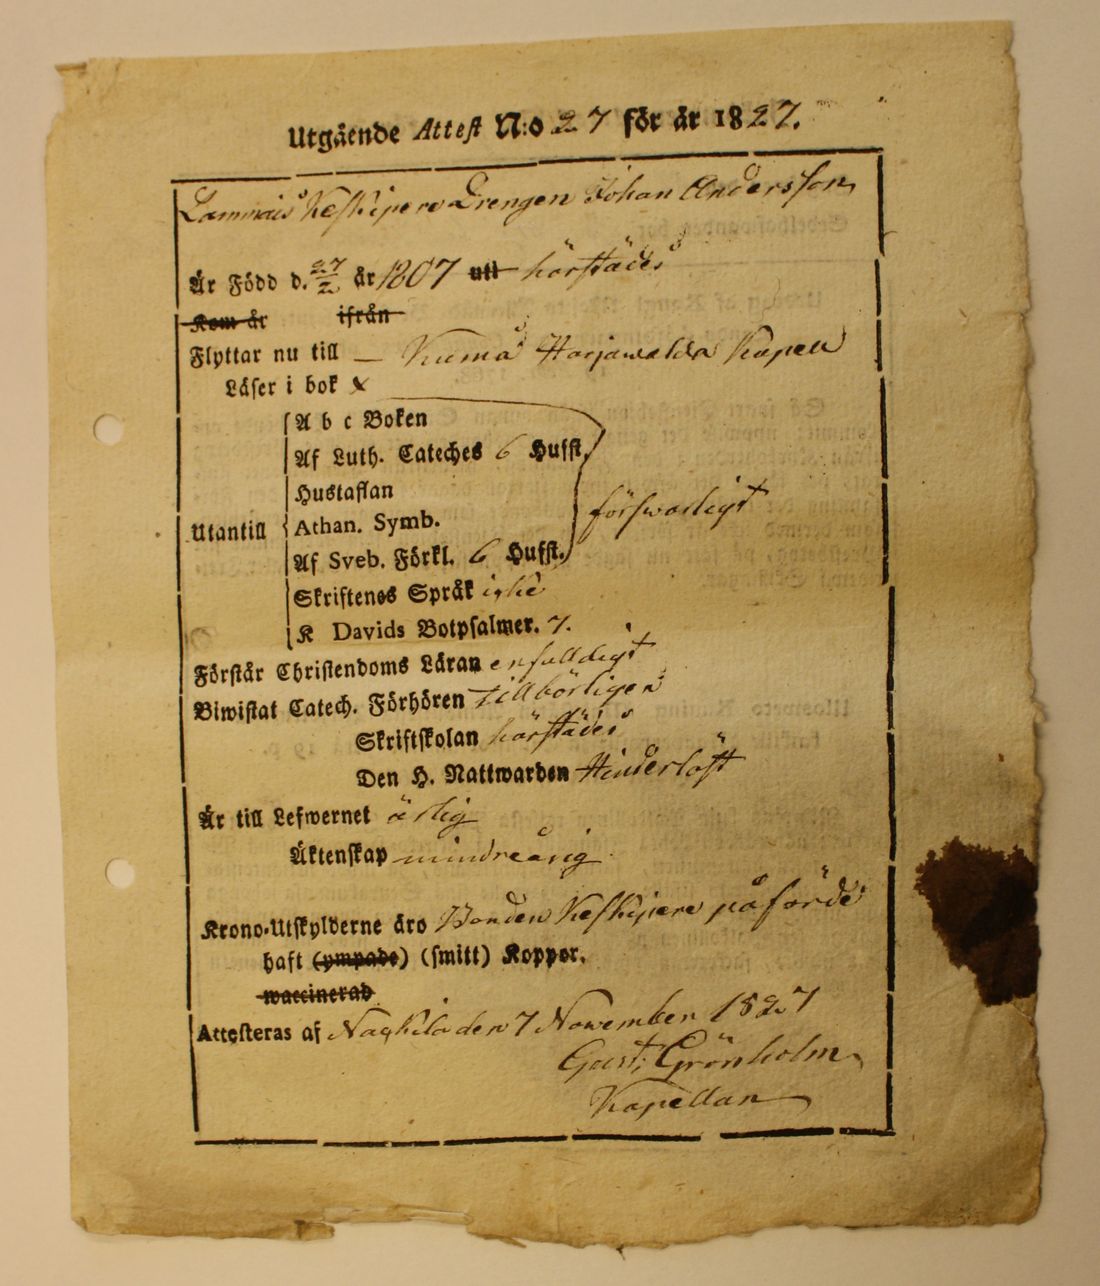 Utgående Attest N:o 27 för år 1827.
Lammais Keskipere Drengen Johan Andersson
Är Född d. 27/2 år 1807 utt härstädes
Kom år ifrån
Flyttar nu till — Kumå Harjawalda Kapell
Läser i bok x
A b c Boken
Af Luth. Cateches 6 Hufst.
Hustaflan
Utantill Athan. Symb. försvarligt
Af Sveb. Förkl. 6 Hufst.
Skriftenes Språk icke
K Davids Botpsalmer. 7.
Förstår Christendoms Läran enfalldigt
Biwistat Catech. Förhören tillbörligen
Skriftskolan härstädes
Den H. Nattwarden Hinderlöst
Är till Lefwernet ärlig
Äktenskap mindreårig
Krono-Utskylderne äro Bonden Keskipere påförde
haft (ympade) (smitt) Koppor.
waccinerad
Attesteras af Nackila den 7 November 1827
Gust. Grönholm
Kapellan